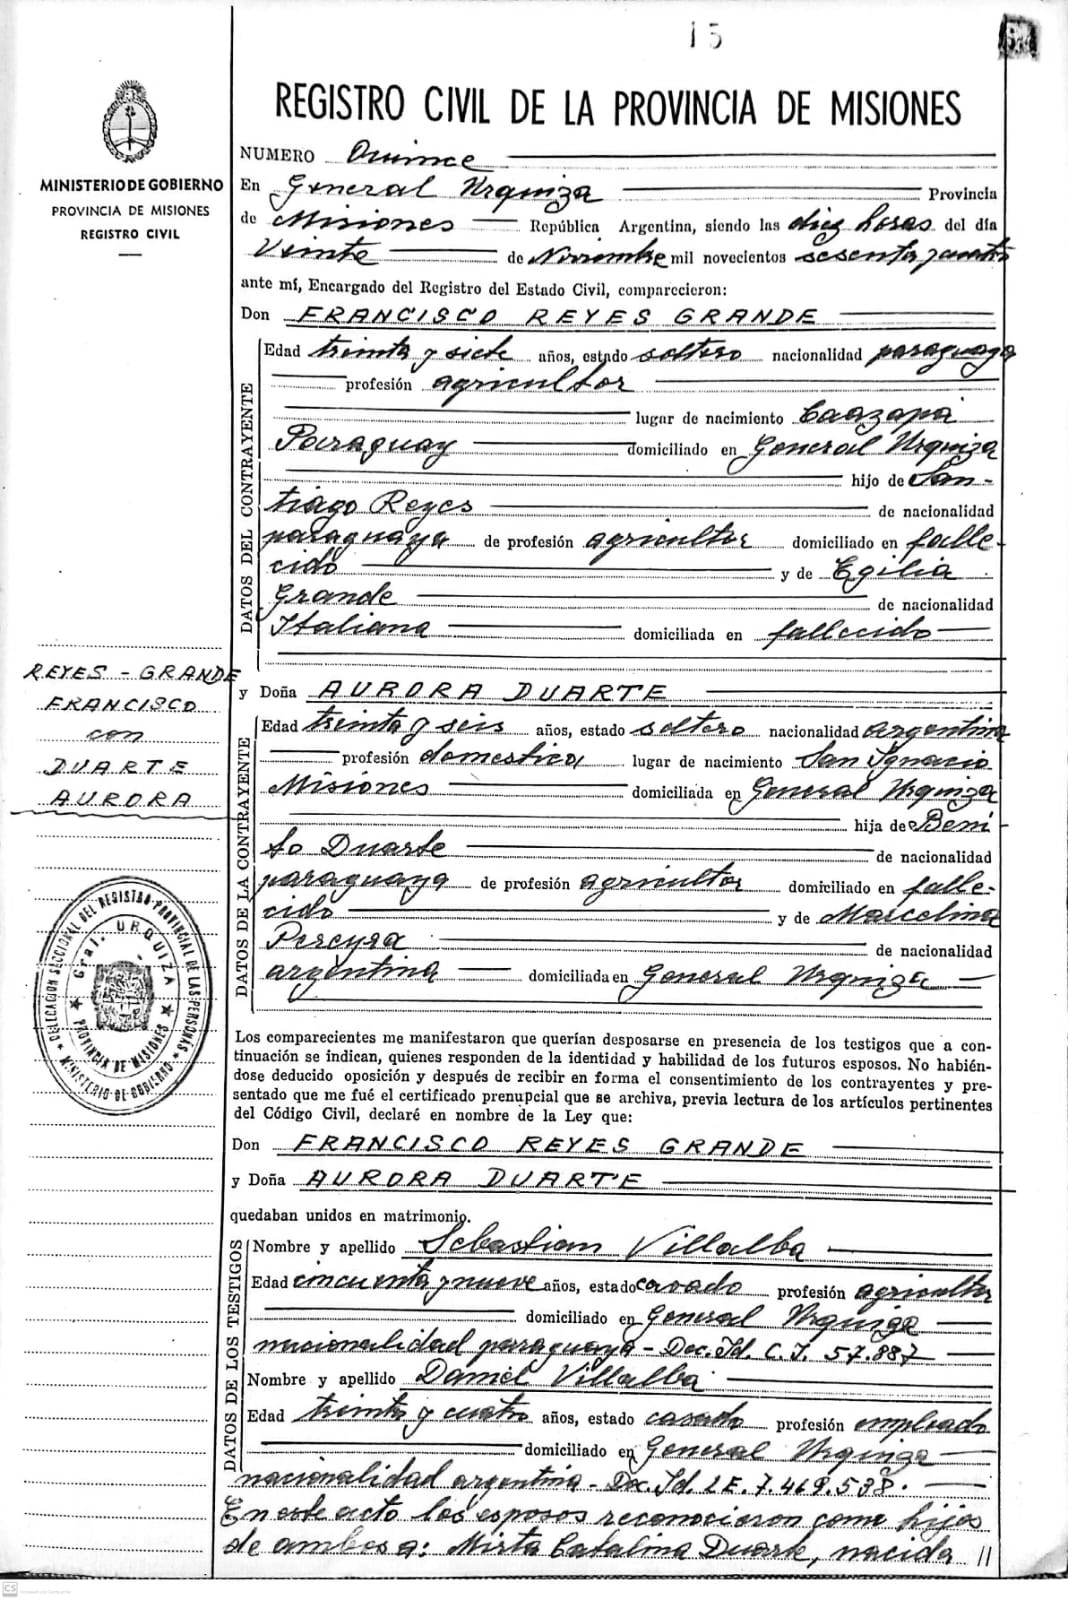 15
REGISTRO CIVIL DE LA PROVINCIA DE MISIONES
MINISTERIO DE GOBIERNO
PROVINCIA DE MISIONES
REGISTRO CIVIL
NUMERO Quince
En General Urquiza Provincia
de Misiones República Argentina, siendo las diez horas del día
Veinte de Noviembre mil novecientos sesenta y cuatro
ante mí, Encargado del Registro del Estado Civil, comparecieron:
Don FRANCISCO REYES GRANDE
DATOS DEL CONTRAYENTE
Edad treinta y siete años, estado soltero nacionalidad paraguaya
profesión agricultor
lugar de nacimiento Caazapá
Paraguay domiciliado en General Urquiza
hijo de San-
tiago Reyes de nacionalidad
paraguaya de profesión agricultor domiciliado en falle-
cido y de Egilia
Grande de nacionalidad
Italiana domiciliada en fallecido
REYES - GRANDE
FRANCISCO
con
DUARTE
AURORA
y Doña AURORA DUARTE
DATOS DE LA CONTRAYENTE
Edad treinta y seis años, estado soltero nacionalidad argentina
profesión domestica lugar de nacimiento San Ignacio
Misiones domiciliada en General Urquiza
hija de Beni
to Duarte de nacionalidad
paraguaya de profesión agricultor domiciliado en falle-
cido y de Marcelina
Pereyra de nacionalidad
argentina domiciliada en General Urquiza
DELEGACION SECCIONAL DEL REGISTRO PROVINCIAL DE LAS PERSONAS
MINISTERIO DE GOBIERNO
Gral. URQUIZA
PROVINCIA DE MISIONES
Los comparecientes me manifestaron que querían desposarse en presencia de los testigos que a con-
tinuación se indican, quienes responden de la identidad y habilidad de los futuros esposos. No habién-
dose deducido oposición y después de recibir en forma el consentimiento de los contrayentes y pre-
sentado que me fué el certificado prenupcial que se archiva, previa lectura de los artículos pertinentes
del Código Civil, declaré en nombre de la Ley que:
Don FRANCISCO REYES GRANDE
y Doña AURORA DUARTE
quedaban unidos en matrimonio.
DATOS DE LOS TESTIGOS
Nombre y apellido Sebastian Villalba
Edad cincuenta y nueve años, estado casado profesión agricultor
domiciliado en General Urquiza
nacionalidad paraguaya - Doc. Id. C. I. 57.887
Nombre y apellido Daniel Villalba
Edad treinta y cuatro años, estado casado profesión empleado
domiciliado en General Urquiza
nacionalidad argentina - Doc. Id. L E. 7.469.538.
En este acto los esposos reconocieron como hijos
de ambos a: Mirta Catalina Duarte, nacida //
CS